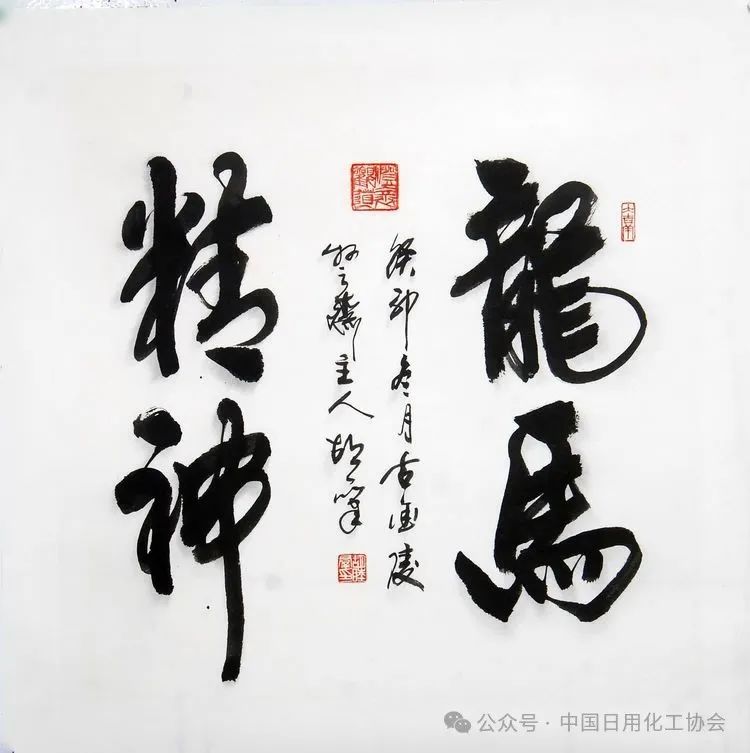 龍馬
精神
癸卯冬月古金陵
主人胡
公众号·中国日用化工协会